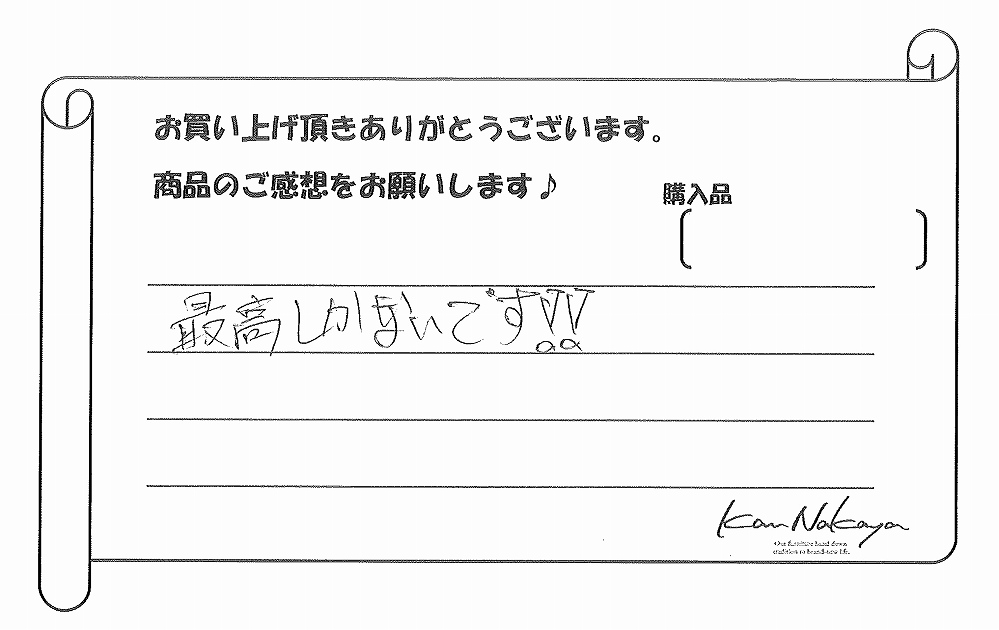 お買い上げ頂きありがとうございます。
商品のご感想をお願いします♪
購入品
最高しかないです!!
Kan Nakaya
Our furniture hand down
tradition to brand-new life.